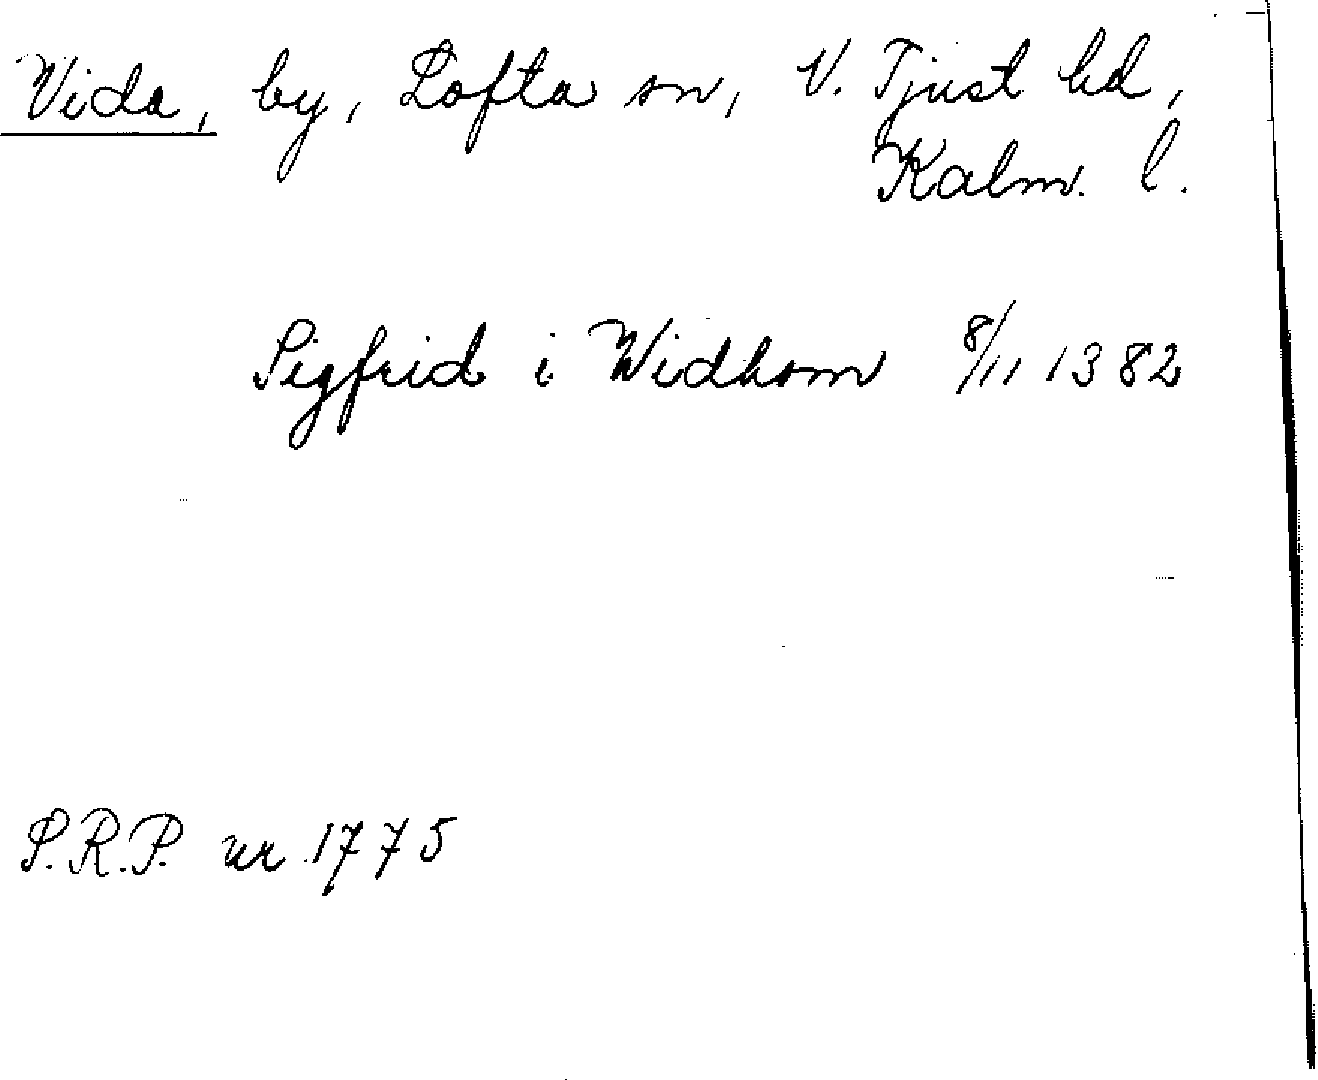 Vida, by, Lofta sn, V. Tjust hd,
Kalm. l.
Sigfrid i Widhom 8/11 1382
S.R.P. nr 1775